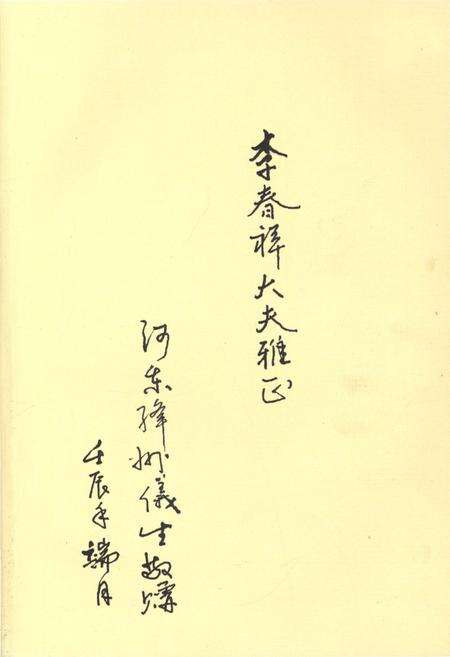 李春祥大夫雅正
河东绛州仪生敬赠
壬辰年端月